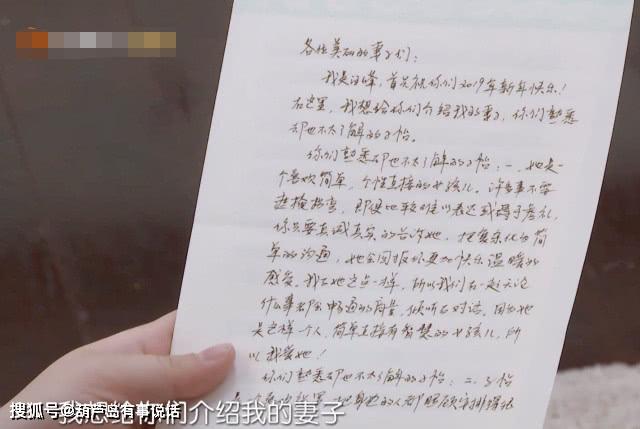 各位美丽的妻子们：
我是汪峰，首先祝你们2019年新年快乐！
在这里，我想给你们介绍我的妻子，你们熟悉
却也不太了解的子怡。
你们熟悉却也不太了解的子怡：一、她是一
个喜欢简单，个性直接的女孩儿。许多事不要
遮掩
你只要真诚真实的告诉她，把复杂化为简
单的沟通，她会回报你更加快乐温暖的
感受。我和她这点一样，所以我们在一起无论
什么事都会
倾听和对话。因为她
是这样一个人，简单直接有智慧的女孩儿，所
以我爱她！
你们熟悉却也不太了解的子怡：二、子怡
我想给你们介绍我的妻子
搜狐号@葫芦岛有事说话